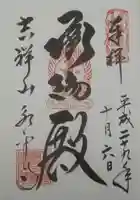 奉拝
平成二十九年
十月六日
承陽殿
吉祥山永平寺